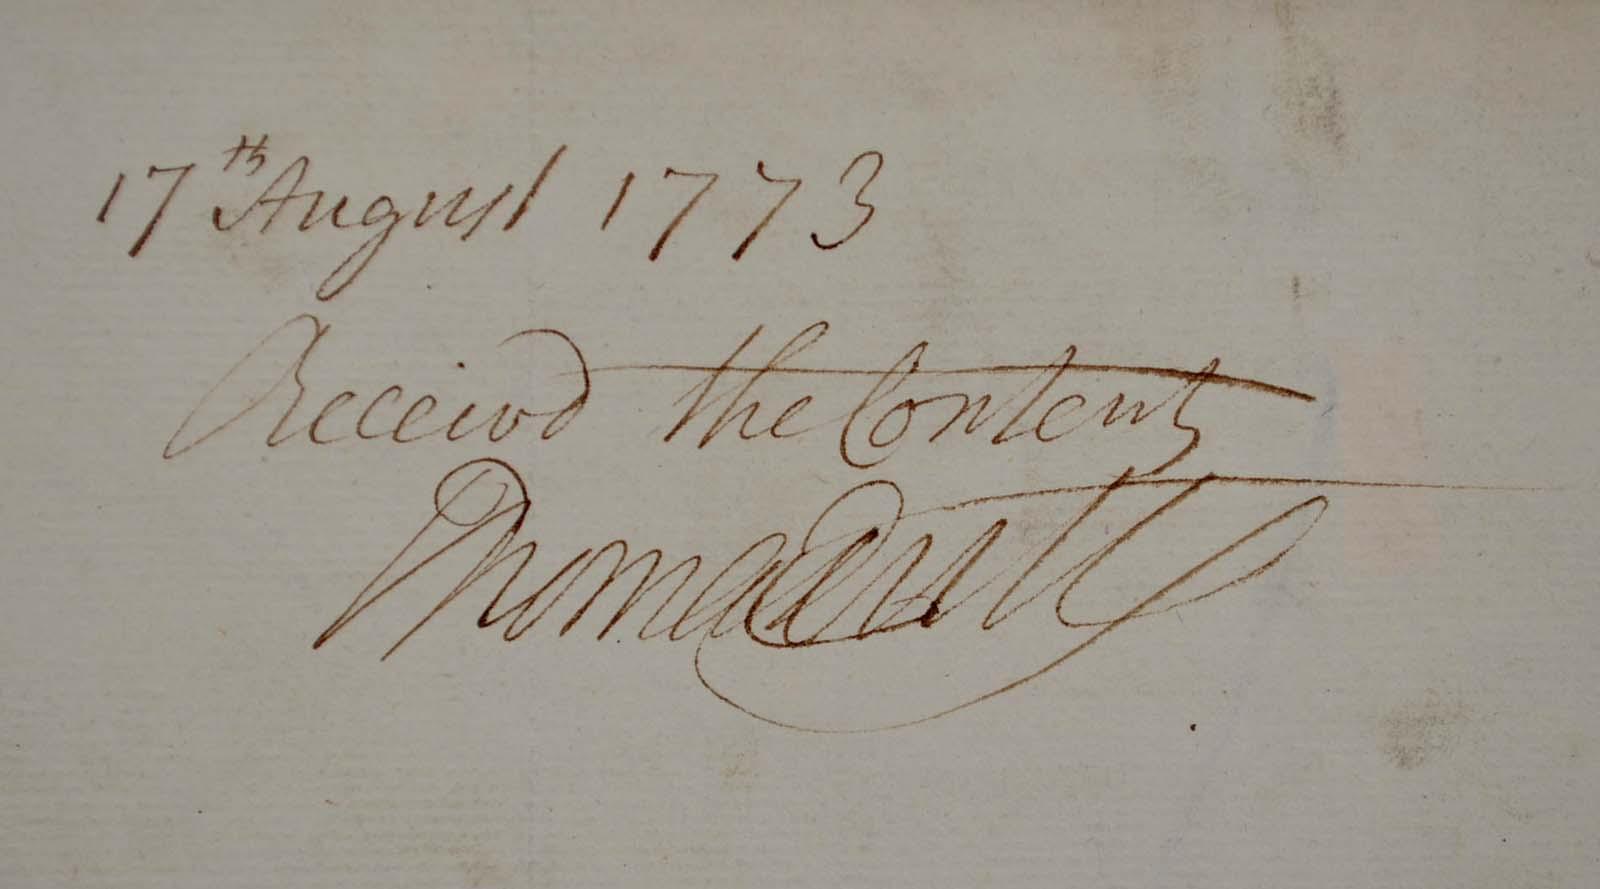 17th August 1773
Receivd the Contents
Thomas